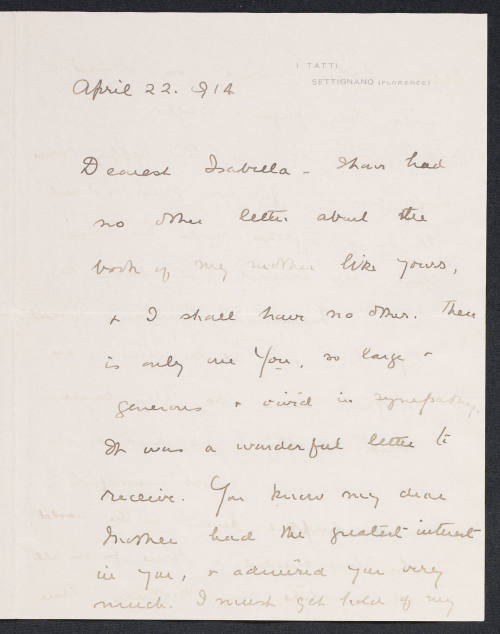 I TATTI,
SETTIGNANO (FLORENCE)
April 22. 914
Dearest Isabella - I have had
no other letter about the
book of my mother like yours,
& I shall have no other. There
is only one You, so large &
generous & vivid in sympathy.
It was a wonderful letter to
receive. You know my dear
Mother had the greatest interest
in you, & admired you very
much. I must get hold of my